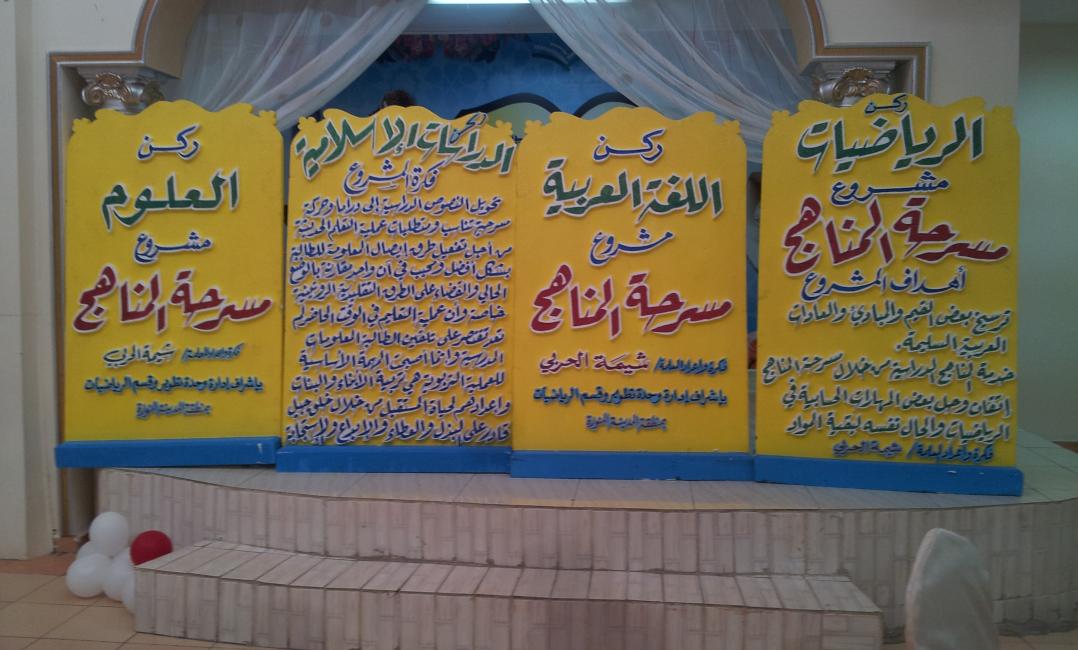 ركن
الرياضيات
مشروع
مسرحة المناهج
أهداف المشروع
ترسيخ بعض القيم والمبادئ والعادات
العربية السليمة.
خدمة المناهج الدراسية من خلال مسرحة المناهج
إتقان وحل بعض المهارات الحسابية في
الرياضيات والحال نفسه لبقية المواد
فكرة وإعداد المعلمة/ شيمة الحربي
ركن
اللغة العربية
مشروع
مسرحة المناهج
فكرة وإعداد المعلمة/ شيمة الحربي
بإشراف إدارة وحدة تطوير وقسم الرياضيات
بمنطقة المدينة المنورة
ركن
الدراسات الإسلامية
فكرة المشروع
تحويل النصوص الدراسية إلى دراما وحركة
مسرحية تناسب ومتطلبات عملية التعلم الحديثة
من أجل تفعيل طرق إيصال المعلومة للطالبة
بشكل أفضل ومحبب في آن واحد مقارنة بالوضع
الحالي والقضاء على الطرق التقليدية الروتينية
خاصة وأن عملية التعليم في الوقت الحاضر لم
تعد تقتصر على تلقين الطالبة المعلومات
الدراسية وإنما أصبحت المهمة الأساسية
للعملية التربوية هي تربية الأبناء والبنات
وإعدادهم لحياة المستقبل من خلال خلق جيل
قادر على البذل والعطاء والإبداع والإستجابة
ركن
العلوم
مشروع
مسرحة المناهج
فكرة وإعداد المعلمة/ شيمة الحربي
بإشراف إدارة وحدة تطوير وقسم الرياضيات
بمنطقة المدينة المنورة